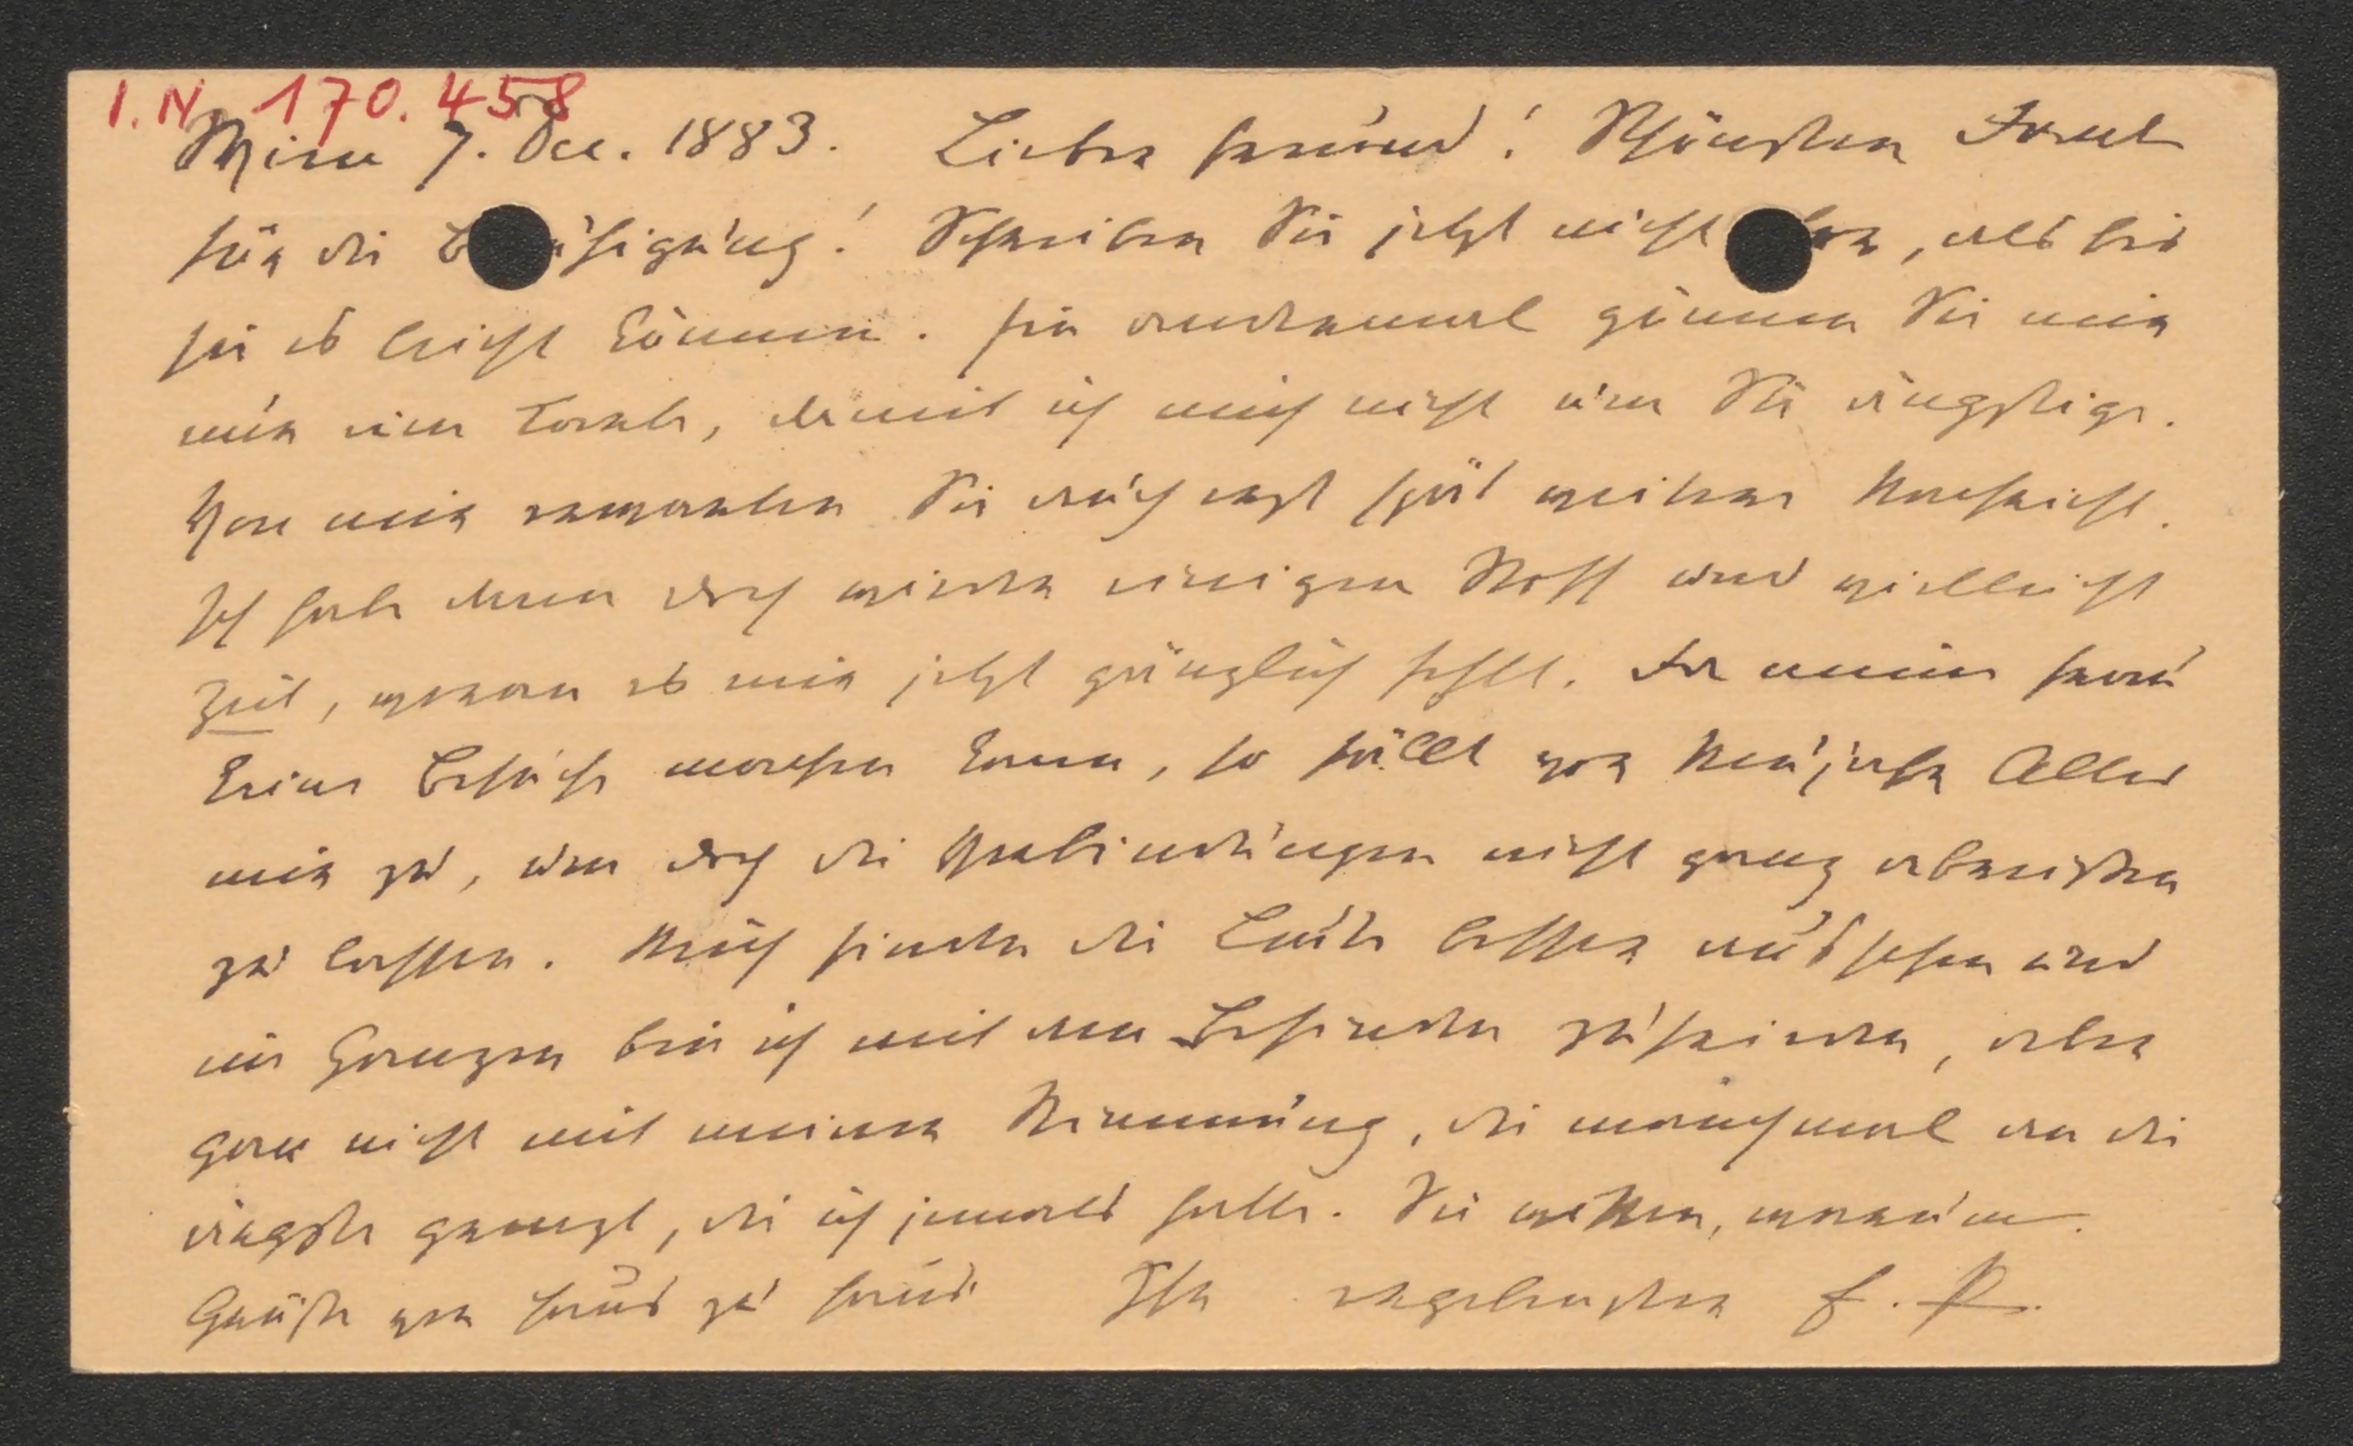 I. N. 170.458
Wien 7. Dec. 1883. Lieber Freund! Schönsten Dank
für die B uhigung! Schreiben Sie jetzt nicht er, als bis
sie es leicht können. Hin und einmal gönnen Sie mir
nur eine Karte, damit ich mich nicht um Sie ängstige.
Von mir erwarten Sie auch erst spät weitere Nachricht.
Ich habe dann doch wieder einigen Stoff und vielleicht
Zeit, woran es mir jetzt gänzlich fehlt. Da meine Frau
keine Besuche machen kann, so fällt vor Neujahr Alles
mir zu, um doch die Verbindungen nicht ganz abreißen
zu lassen. Mich finden die Leute besser aussehen und
im Ganzen bin ich mit dem Befinden zufrieden, aber
gar nicht mit meiner Stimmung, die manchmal an die
ängste grenzt, die ich jemals hatte. Sie wissen, warum.
Grüße von Haus zu Haus Ihr ergebenster E. R.